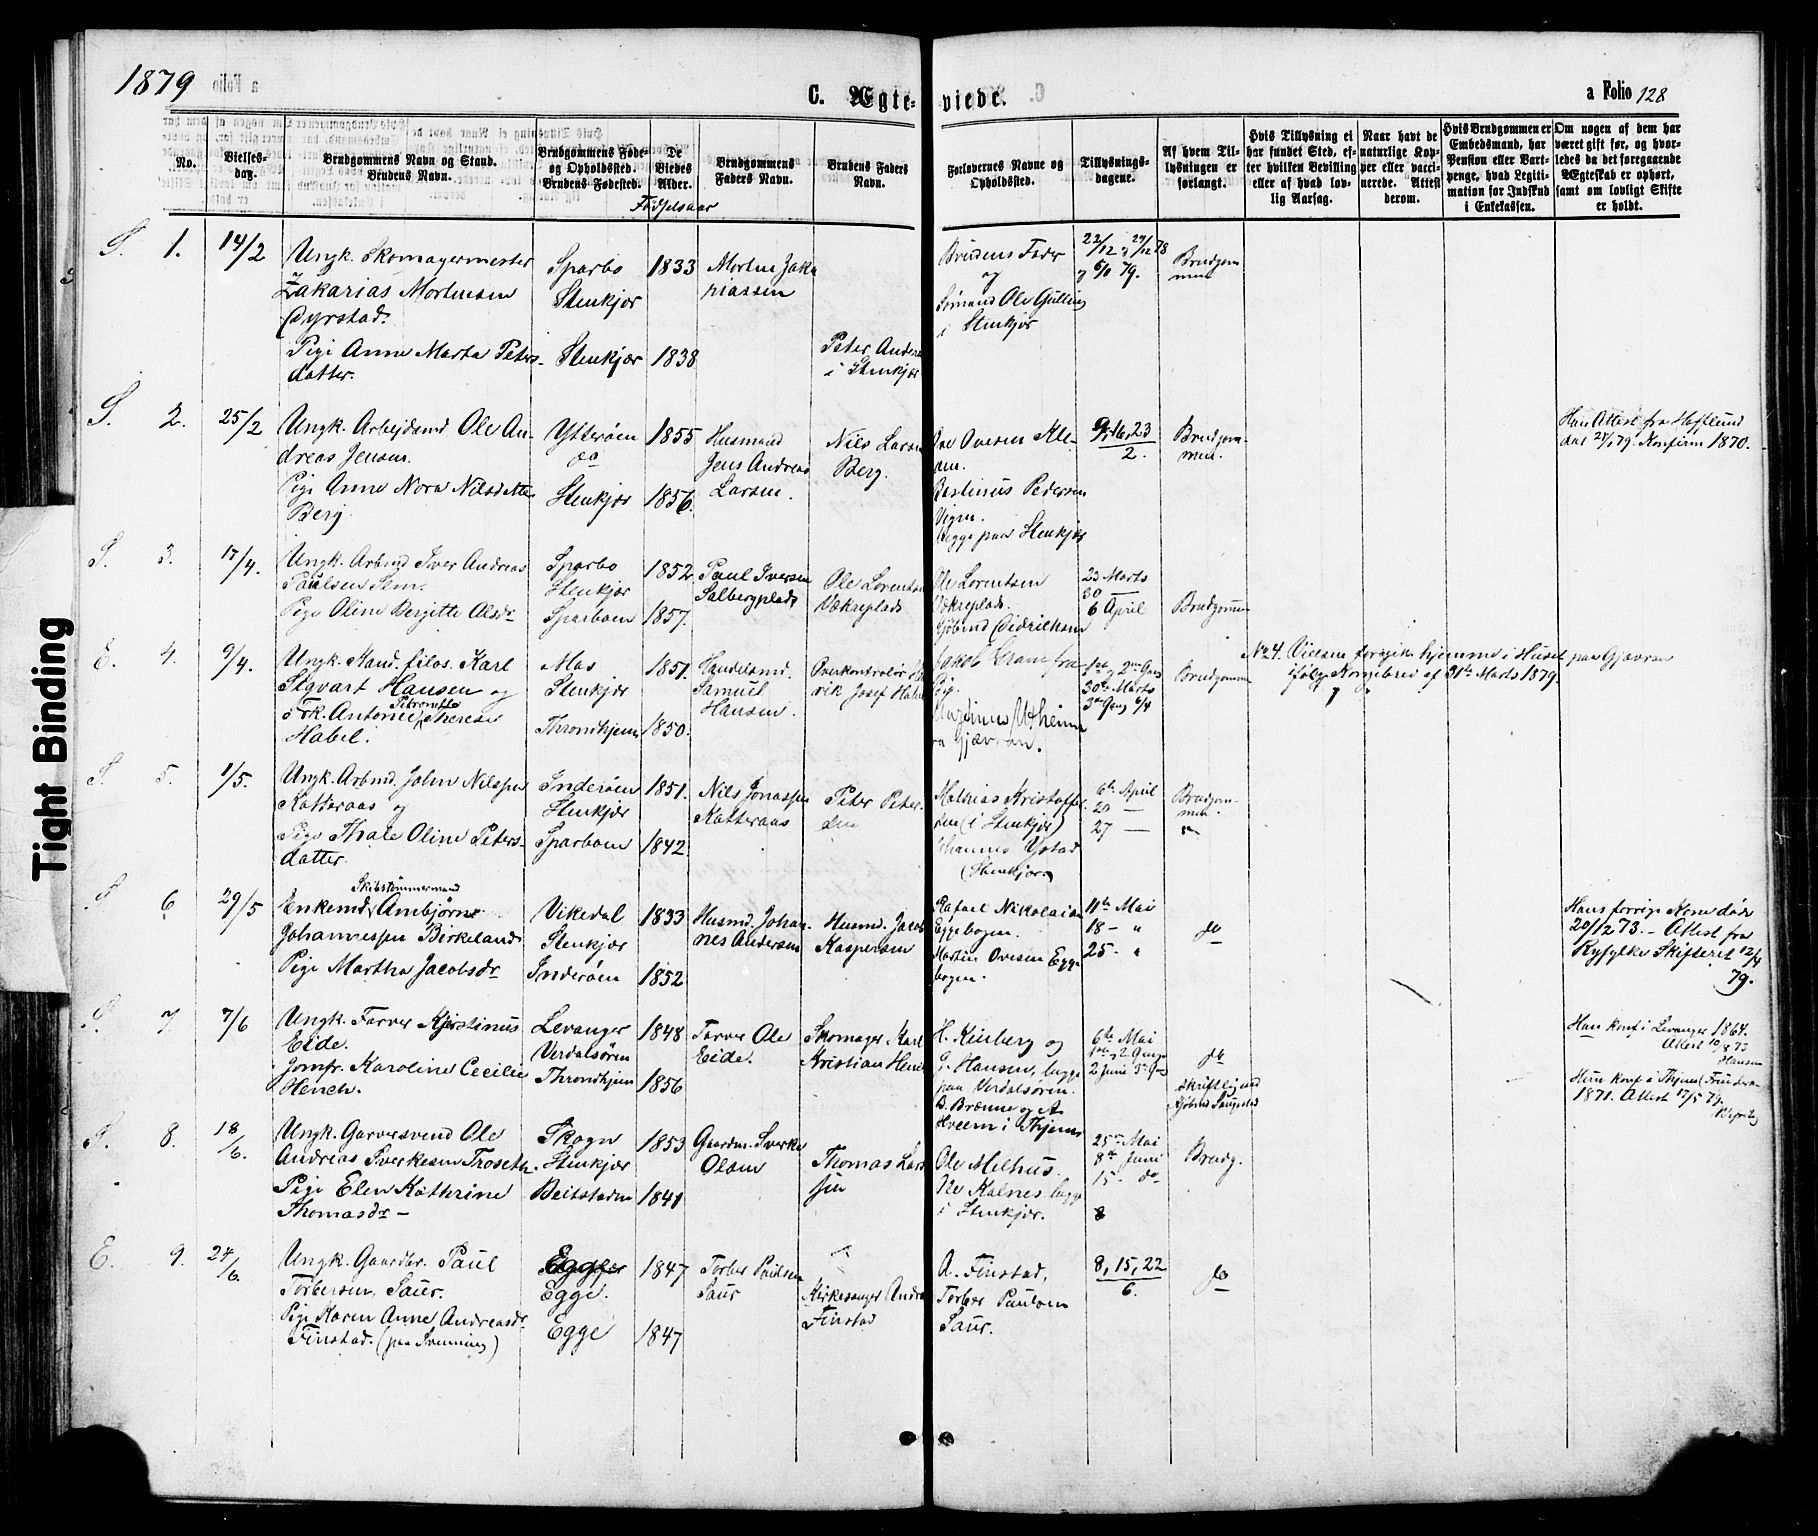 1879
C. Ægte-
viede.
a Folio 128
No.
Vielses-
dag.
Brudgommens Navn og Stand.
Brudens Navn.
Brudgommens Føde-
og Opholdssted.
Brudens Fødested.
De
Viedes
Alder.
Fødselsaar
Brudgommens
Faders Navn.
Brudens Faders
Navn.
Forlovernes Navne og
Opholdssted.
Tillysnings-
dagene.
Af hvem Til-
lysningen er
forlangt.
Hvis Tillysning ei
har fundet Sted, ef-
ter hvilken Bevilling
eller af hvad lov-
lig Aarsag.
Naar havt de
naturlige Kop-
per eller vacci-
nerede. Attest
derom.
Hvis Brudgommen er
Embedsmand, har
Pension eller Vart-
penge, hvad Legiti-
mation for Indskud
i Enkekassen.
Om nogen af dem har
været gift før, og hvor-
ledes da det foregaaende
Ægteskab er ophørt,
samt om lovligt Skifte
er holdt.
S. 1. 14/2
Ungk. Skomagermester
Zakarias Mortensen
Dyrstad.
Pige Anne Marta Peters-
datter.
Sparbo
Stenkjær
Stenkjær
1833
1838
Morten Zaka
riassen
Peter Anders
i Stenkjær
Brudens Fader
og
Sømand Ole Gulling
i Stenkjær
22/12, 29/12 78
og 6/1 79.
Brudgom
men
S. 2. 25/2
Ungk. Arbejdsmd Ole An-
dreas Jensen.
Pige Anne Nora Nilsdatter
Berg.
Ytterøen
do
Stenkjær
1855
1856.
Husmand
Jens Andreas
Larsen.
Nils Larsen
Berg.
Ove Oversen Kle-
men.
Bastinus Pedersen
Vigen.
begge paa Stenkjær
9, 16, 23
2.
Brudgom-
men.
Han Attest fra Hafslund
dat 24/1 79. Konfirm 1870.
S. 3. 17/4.
Ungk. Arbmd Iver Andreas
Paulsen Sem.
Pige Oline Bergitte Olsdr
Sparbo
Stenkjær
Sparboen
1852.
1857.
Paul Iversen
Salbergplads
Ole Lorentsen
Vækreplads
Ole Lorentsen
Vækreplads.
Gjøbmd Didriksen
23 Marts
30 —
6 April
Brudgommen
E. 4. 9/4.
Ungk. Kand. filos. Karl
Sigvart Hansen og
Frk. Antonie Petronelle Therese
Habel.
Mos
Stenkjær
Throndhjem
1851.
1850.
Handelsmd.
Samuel
Hansen.
Overkontrolør
rik Josef Habel
Jakob Gram fra
Magdinus Utheim
fra Gjævran.
1ste og 2den Gang
30te Marts
3die Gang 6/4
Brudgommen
No 4. Vielsen foregik hjemme i Huset paa Gjævran
ifølge Kongebrev af 31te Marts 1879.
S. 5. 1/5.
Ungk. Arbmd. John Nilssen
Katteraas og
Pige Thale Oline Peters-
datter.
Inderøen
Stenkjær
Sparboen
1851.
1842.
Nils Jonassen
Katteraas
Peter Peter
sen
Mathias Kristoffer-
sen (i Stenkjær)
Johannes Ystad
(Stenkjær)
6te April
20 —
27 —
Brudgom-
men.
S 6 29/5
Enkemd Skibstømmermand Ambjørn
Johannessen Birkeland
Pige Martha Jacobsdr
Vikedal
Stenkjær
Inderøen
1833
1852
Husmd. Johan-
nes Andersen
Husmd. Jacob
Kaspersen
Rafael Nikolaisen
Eggebogen.
Martin Ovesen Egge
bogen.
11te Mai
18 — "
25 — "
do
Hans forrige Kone døde
20/12 73. — Attest fra
Ryfylke Skifteret 12/4
79.
S. 7 7/6
Ungk. Farver Kjerstinus
Eide.
Jomfr. Karoline Cecilie
Hench.
Levanger
Verdalsøren
Throndhjem
1848
1856
Farver Ole
Eide.
Skomager Karl
Kristian Hench
H. Keinberg og
G. Hansen, begge
paa Verdalsøren.
B. Brænne og A.
Hveem i Thjem
6te Mai
1ste og 2 Gang
2 Juni 3die Gang
do
skriftlig ved
Kjøbmd Saugestad
Han konf i Levanger 1864.
Attest 10/8 73
Hansen
Hun konf i Thjem (Fruekirk
1871. Attest 12/5 79.
S. 8. 18/6.
Ungk. Garversvend Ole
Andreas Sverkesen Troseth.
Pige Elen Kathrine
Thomasdr —
Skogn
Stenkjær
Beitstaden
1853
1841
Gaardm. Sverke
Olsen
Thomas Lars
sen
Ole Melhus.
Ole Kalnes, begge
i Stenkjær.
25de Mai
8de Juni
15. do
Brudg.
E. 9. 24/6.
Ungk. Gaardbr. Paul
Torbersen, Saur.
Pige Karen Anne Andreasdr
Finstad. (paa Svenning)
Egge
Egge.
Egge
1847
1847
Torber Paulsen
Saur
Kirkesanger Andreas
Finstad
A. Finstad,
Torber Paulsen
Saur.
8, 15, 22
6.
do
Tight Binding